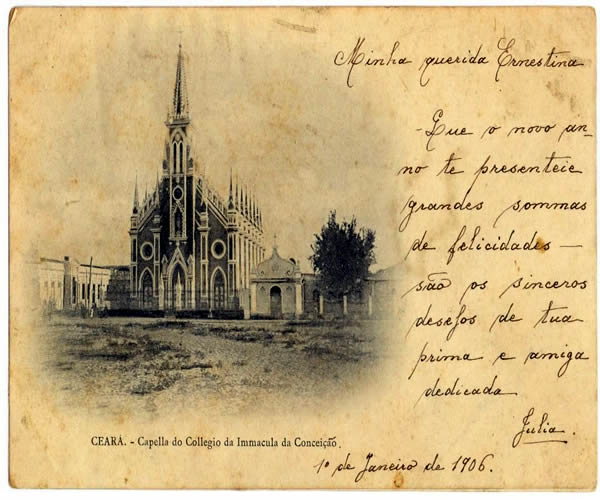 Minha querida Ernestina
- Que o novo an-
no te presenteie
grandes sommas
de felicidades —
são os sinceros
desejos de tua
prima e amiga
dedicada
Julia.
1º de Janeiro de 1906.
CEARÁ. - Capella do Collegio da Immacula da Conceição.